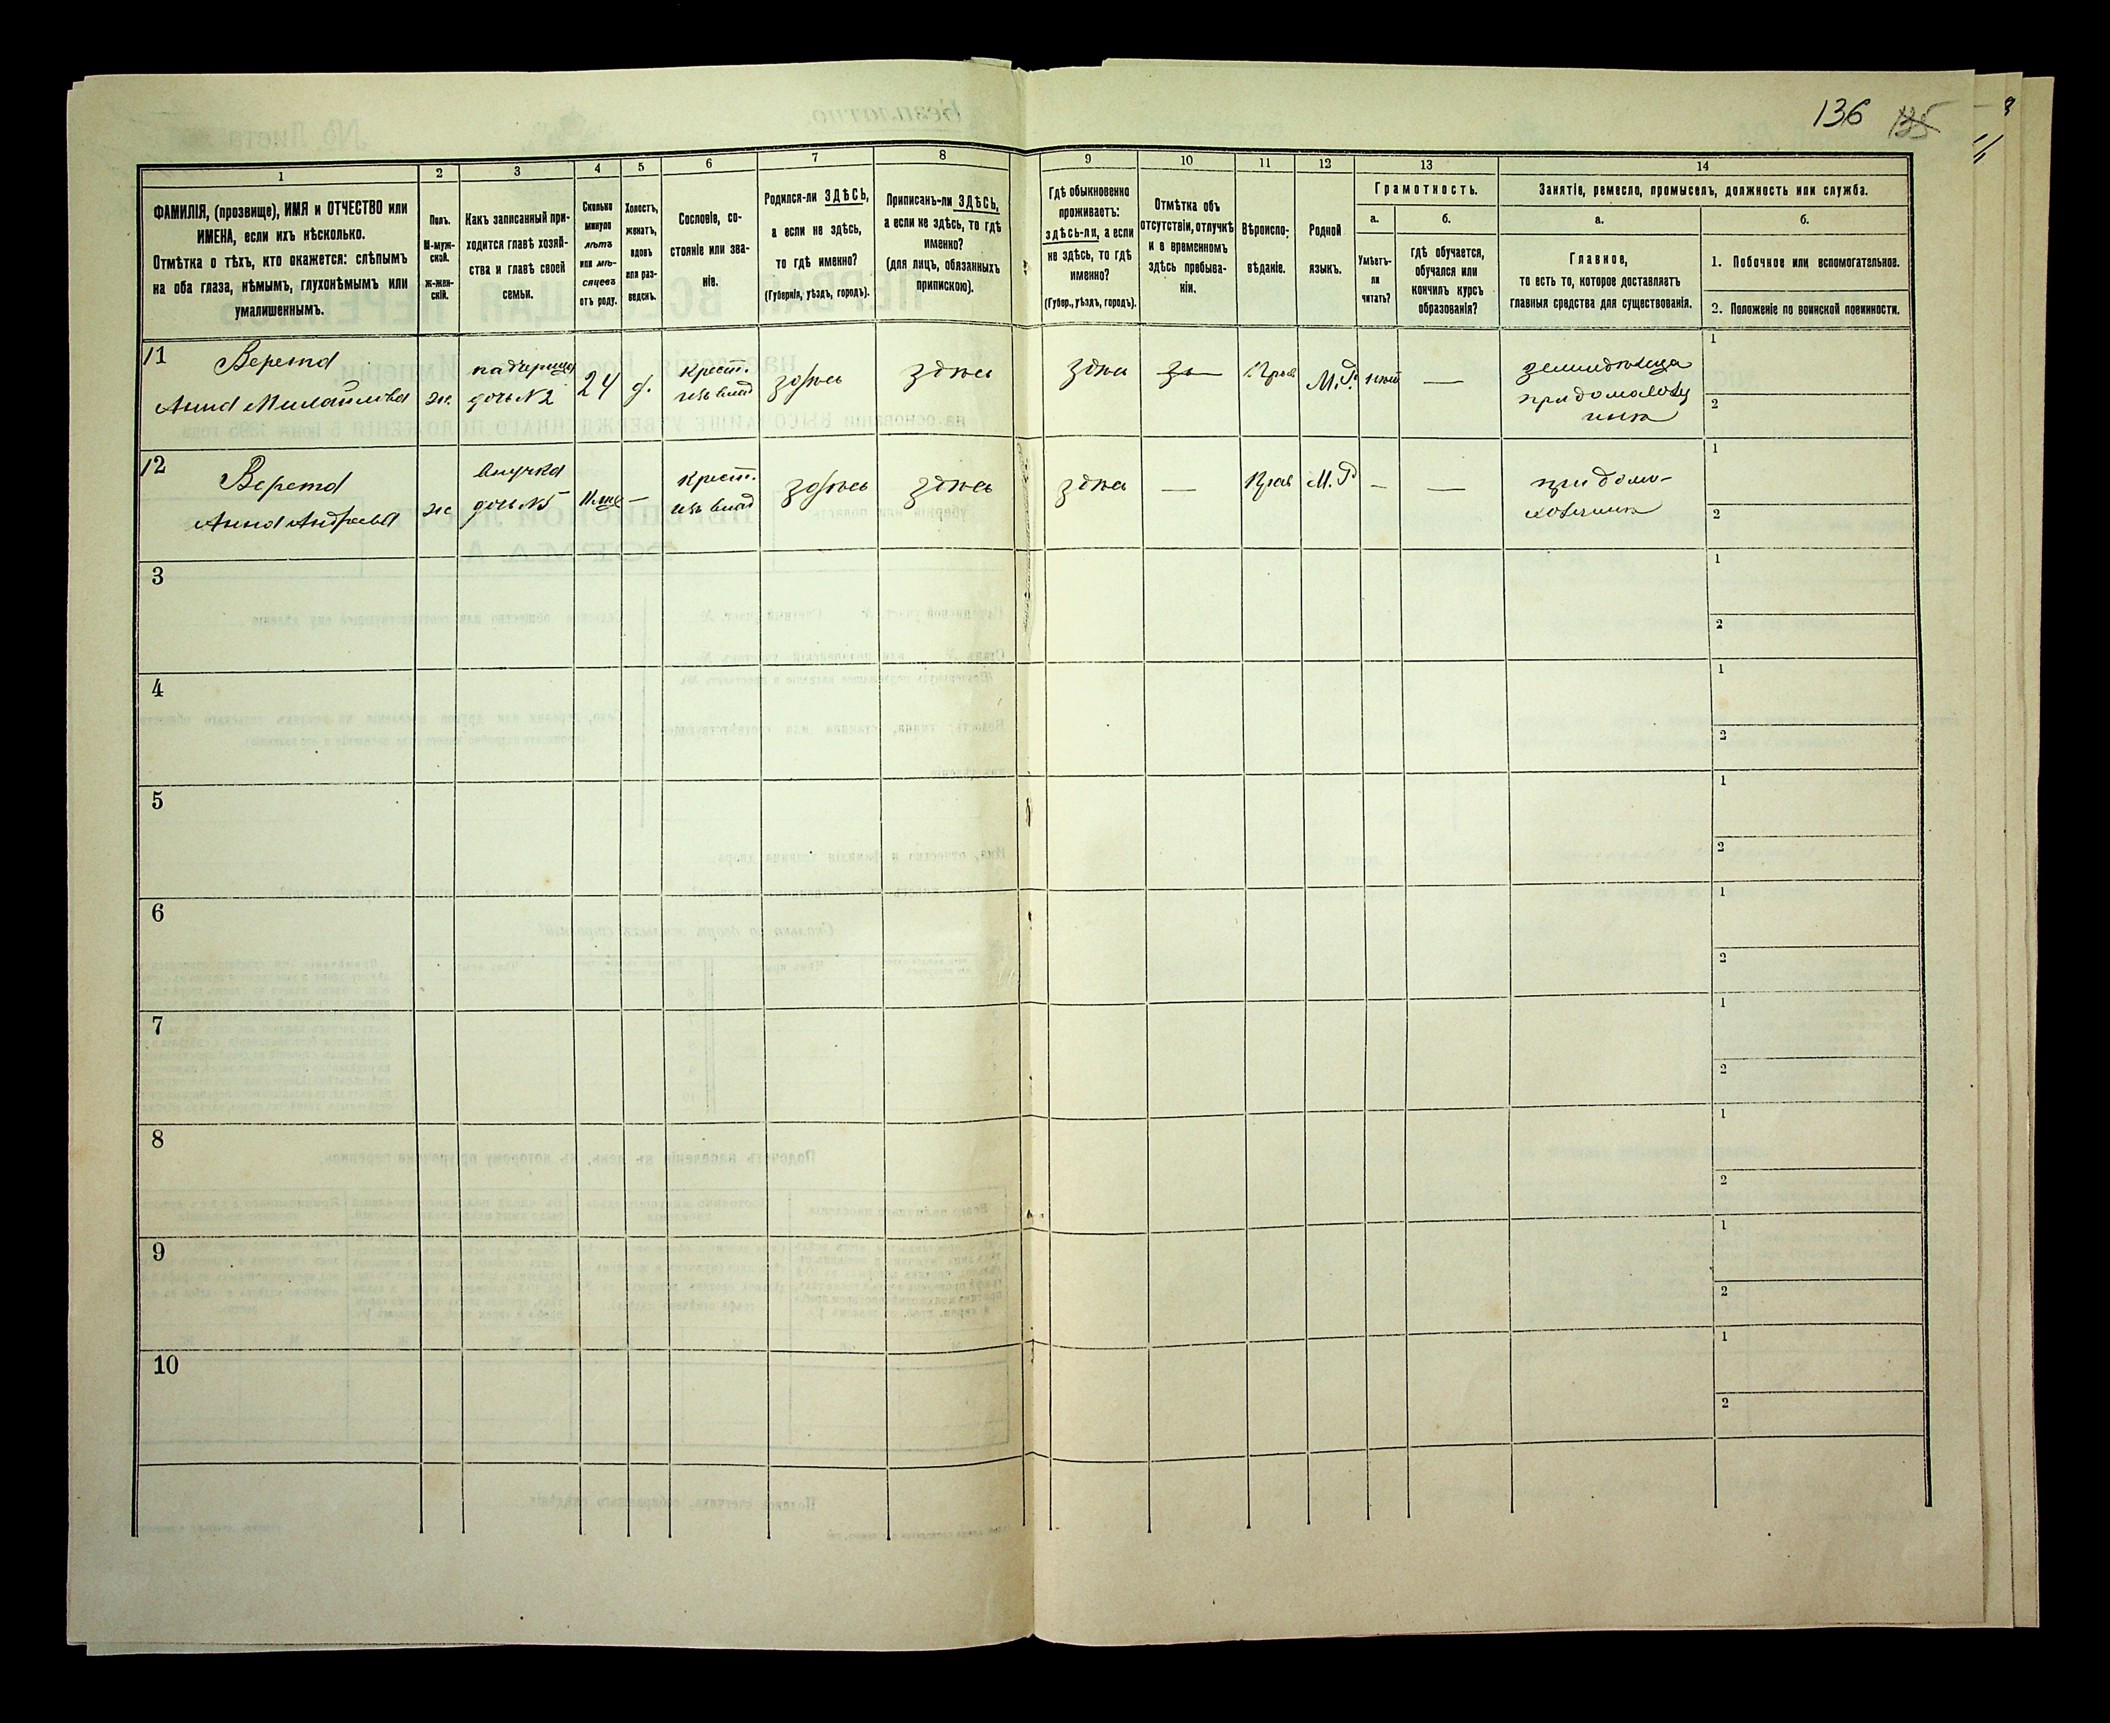 136 135
1 2 3 4 5 6 7 8 9 10 11 12 13 14
ФАМИЛІЯ, (прозвище), ИМЯ и ОТЧЕСТВО или ИМЕНА, если ихъ нѣсколько.
Отмѣтка о тѣхъ, кто окажется: слѣпымъ на оба глаза, нѣмымъ, глухонѣмымъ или умалишеннымъ.
Полъ.
М-мужской.
Ж-женскій.
Какъ записанный приходится главѣ хозяйства и главѣ своей семьи.
Сколько минуло лѣтъ или мѣсяцевъ отъ роду.
Холостъ, женатъ, вдовъ или разведенъ.
Сословіе, состояніе или званіе.
Родился-ли ЗДѢСЬ, а если не здѣсь, то гдѣ именно?
(Губернія, уѣздъ, городъ).
Приписанъ-ли ЗДѢСЬ, а если не здѣсь, то гдѣ именно?
(для лицъ, обязанныхъ припискою).
Гдѣ обыкновенно проживаетъ: здѣсь-ли, а если не здѣсь, то гдѣ именно?
(Губер., уѣздъ, городъ).
Отмѣтка объ отсутствіи, отлучкѣ и о временномъ здѣсь пребываніи.
Вѣроисповѣданіе.
Родной языкъ.
Грамотность.
а. б.
Умѣетъ-ли читать?
Гдѣ обучается, обучался или кончилъ курсъ образованія?
Занятіе, ремесло, промыселъ, должность или служба.
а. б.
Главное,
то есть то, которое доставляетъ главныя средства для существованія.
1. Побочное или вспомогательное.
2. Положеніе по воинской повинности.
11 Верета
Анна Михайлова
ж.
падчерица
дочь N 2
24
д.
крест.
изъ влад
здѣсь
здѣсь
здѣсь
Прав
М.Р.
нѣт
—
при домохозя
1
2
12 Верета
Анна Андреева
ж
внучка
дочь N5
—
крест.
изъ влад
здѣсь
здѣсь
здѣсь
—
Прав
М.Р
—
—
при домо-
1
2
3
1
2
4
1
2
5
1
2
6
1
2
7
1
2
8
1
2
9
1
2
10
1
2